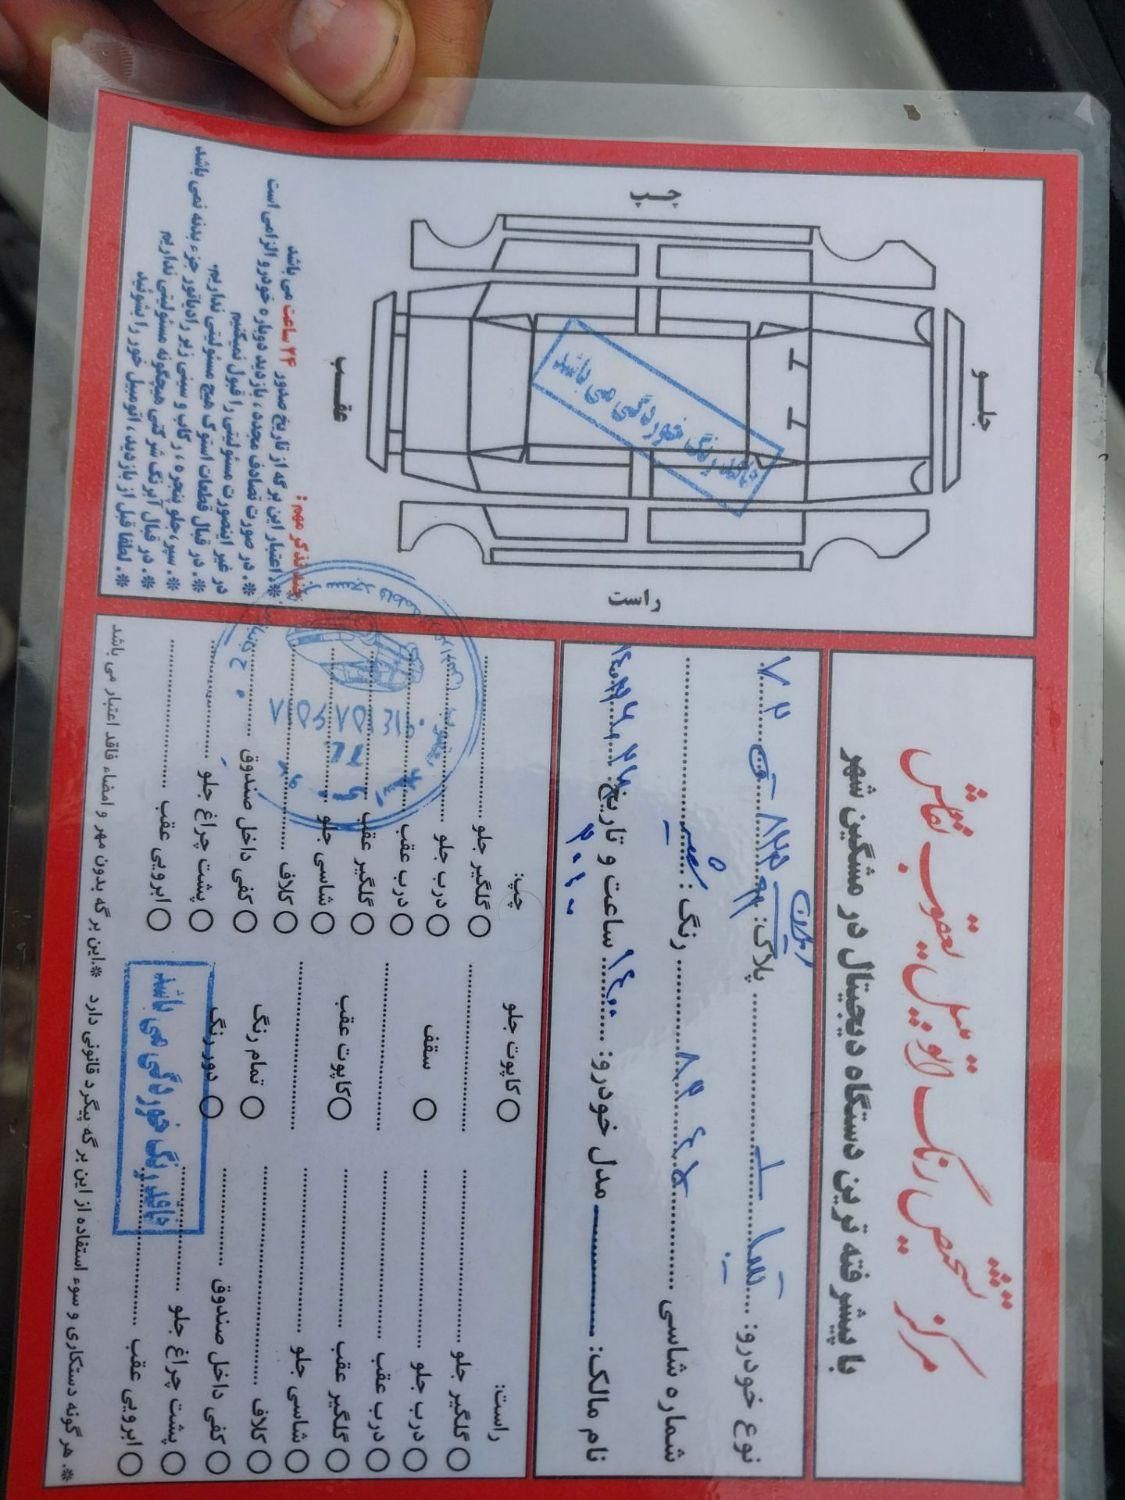 مرکز تشخیص رنگ اتومبیل یعقوب نقاش
با پیشرفته ترین دستگاه دیجیتال در مشگین شهر
نوع خودرو: تیبا پلاک: ایران ۸۳۵
شماره شاسی رنگ: سفید
نام مالک: مدل خودرو: ۱۴۰۰ ساعت و تاریخ
راست:
گلگیر جلو
درب جلو
درب عقب
گلگیر عقب
شاسی جلو
کلاف
کفی داخل صندوق
پشت چراغ جلو
ابرویی عقب
کاپوت جلو
سقف
کاپوت عقب
تمام رنگ
دور رنگ
فاقد رنگ خوردگی می باشد
چپ:
گلگیر جلو
درب جلو
درب عقب
گلگیر عقب
شاسی جلو
کلاف
کفی داخل صندوق
پشت چراغ جلو
ابرویی عقب
*. هر گونه دستکاری و سوء استفاده از این برگه پیگرد قانونی دارد *.این برگه بدون مهر و امضاء فاقد اعتبار می باشد
چپ
جلو
عقب
راست
فاقد رنگ خوردگی می باشد
چند تذکر مهم:
*. اعتبار این برگه از تاریخ صدور ۲۴ ساعت می باشد
*. در صورت تصادف مجدد، بازدید دوباره خودرو الزامی است
در غیر اینصورت مسئولیتی را قبول نمیکنیم
*. در قبال قطعات استوک هیچ مسئولیتی نداریم.
*. سپر،جلو پنجره ، رکاب و سینی زیر رادیاتور جزء بدنه نمی باشد
*. در قبال آبرنگ شرکتی هیچگونه مسئولیتی نداریم
*. لطفا قبل از بازدید، اتومبیل خود را بشوئید